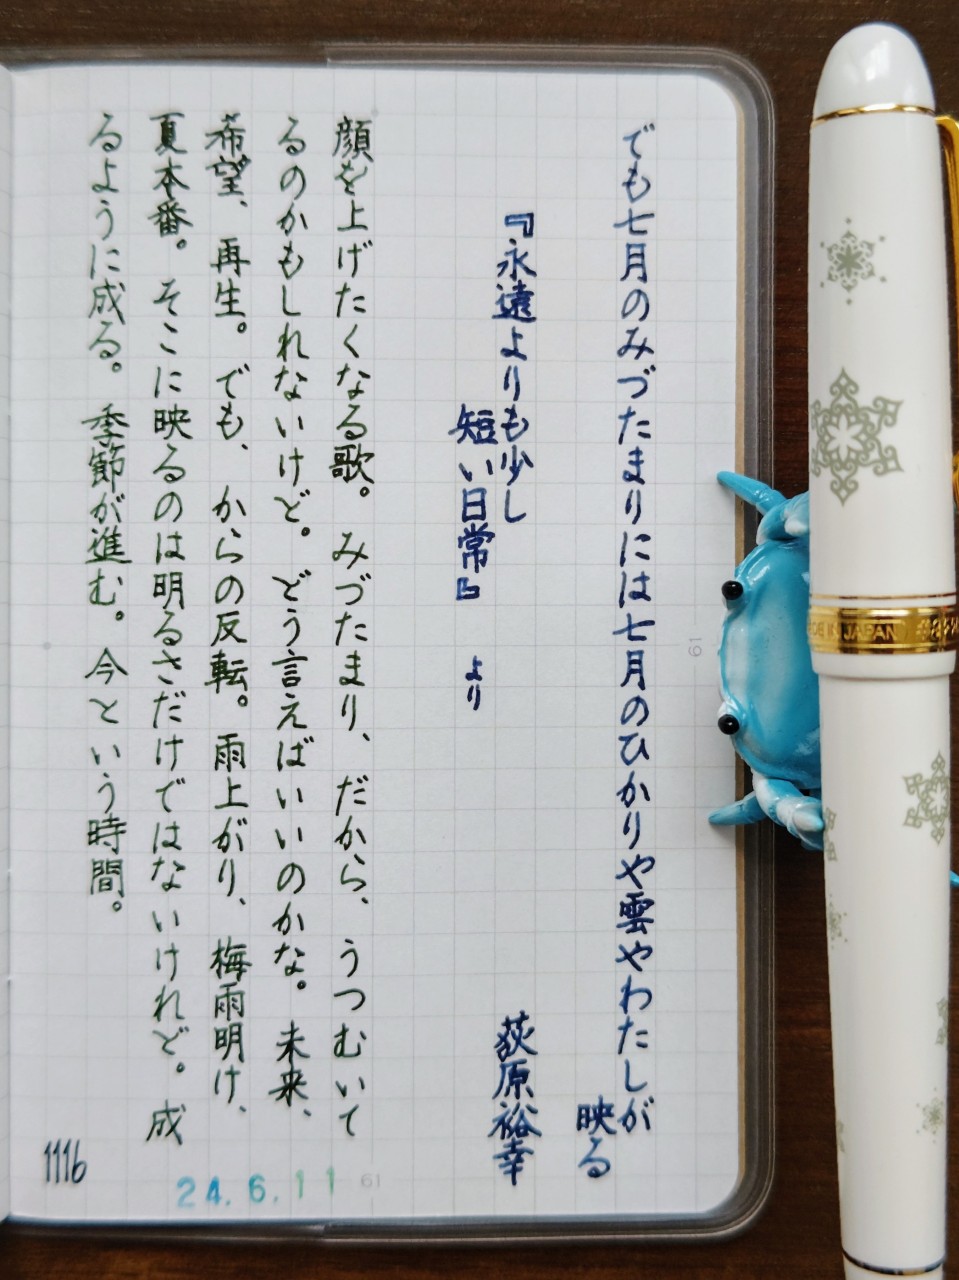 でも七月のみづたまりには七月のひかりや雲やわたしが
映る
『永遠よりも少し
短い日常』より
荻原裕幸
顔を上げたくなる歌。みづたまり、だから、うつむいて
るのかもしれないけど。どう言えばいいのかな。未来、
希望、再生。でも、からの反転。雨上がり、梅雨明け、
夏本番。そこに映るのは明るさだけではないけれど。成
るように成る。季節が進む。今という時間。
1116
24.6.11
61
61
MADE IN JAPAN